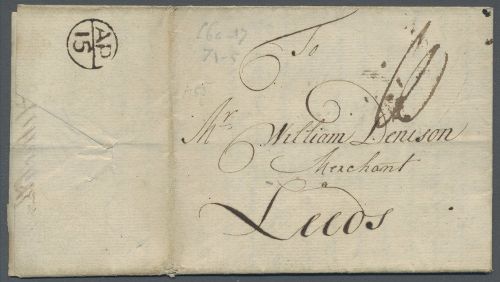 AP
15
To
Mr. William Denison
Merchant
Leeds